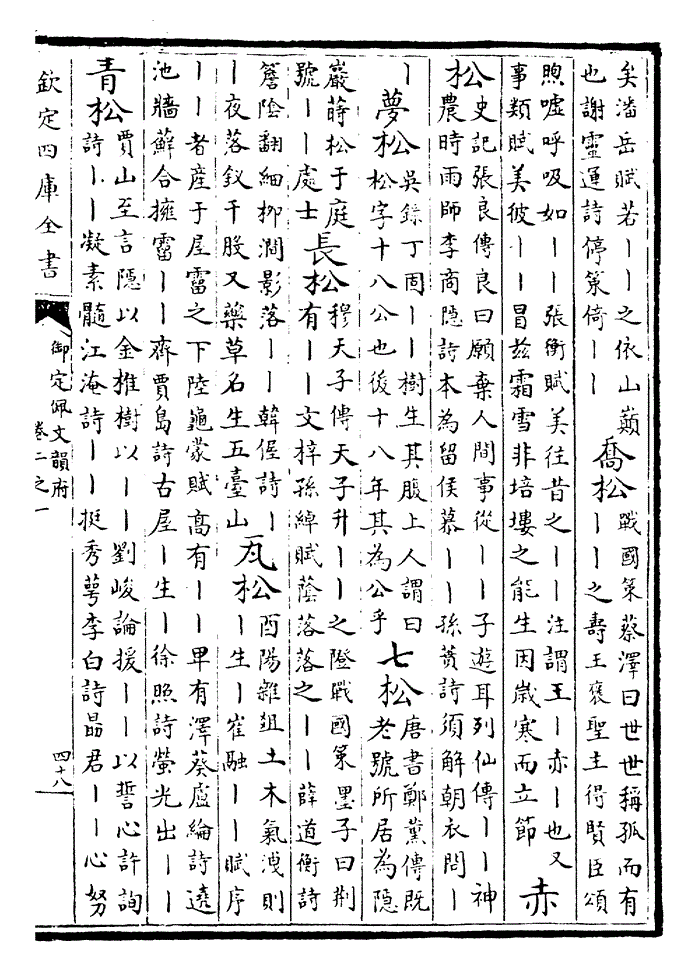 矣潘岳賦若丨丨之依山巔
也謝靈運詩停策倚丨丨
喬松
戰國策蔡澤曰世世稱孤而有
丨丨之壽王褒聖主得賢臣頌
喣嘘呼吸如丨丨張衡賦美往昔之丨丨注謂王丨赤丨也又
事類賦美彼丨丨冒兹霜雪非培塿之能生因歲寒而立節
赤
松
史記張良傳良曰願棄人間事從丨丨子遊耳列仙傳丨丨神
農時雨師李商隱詩本為留侯慕丨丨孫蕡詩須解朝衣問丨
丨
夢松
吳錄丁固丨丨樹生其腹上人謂曰
松字十八公也後十八年其為公乎
七松
唐書鄭薰傳既
老號所居為隱
巖蒔松于庭
號丨丨處士
長松
穆天子傳天子升丨丨之隥戰國策墨子曰荆
有丨丨文梓孫綽賦蔭落落之丨丨薛道衡詩
簷陰翻細柳澗影落丨丨韓偓詩丨
丨夜落釵千股又藥草名生五臺山
瓦松
酉陽雜俎土木氣洩則
丨生丨崔融丨丨賦序
丨丨者産于屋霤之下陸龜蒙賦高有丨丨卑有澤葵盧綸詩遶
池牆蘚合擁霤丨丨齊賈島詩古屋丨生丨徐照詩螢光出丨丨
青松
賈山至言隱以金椎樹以丨丨劉峻論援丨丨以誓心許詢
詩丨丨凝素髓江淹詩丨丨挺秀萼李白詩勗君丨丨心努
欽定四庫全書
御定佩文韻府
卷二之一
四十八